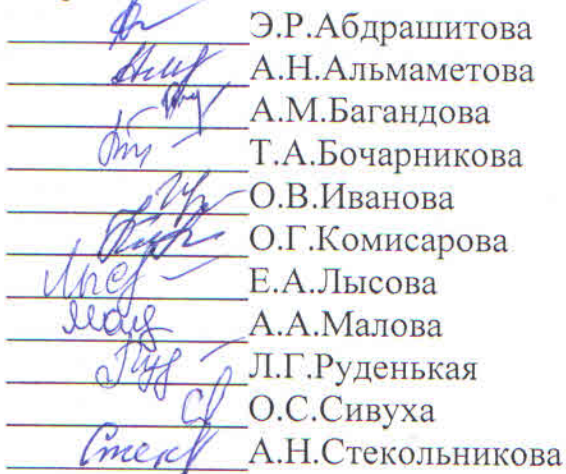 Э.Р.Абдрашитова
А.Н.Альмаметова
А.М.Багандова
Т.А.Бочарникова
О.В.Иванова
О.Г.Комисарова
Е.А.Лысова
А.А.Малова
Л.Г.Руденькая
О.С.Сивуха
А.Н.Стекольникова